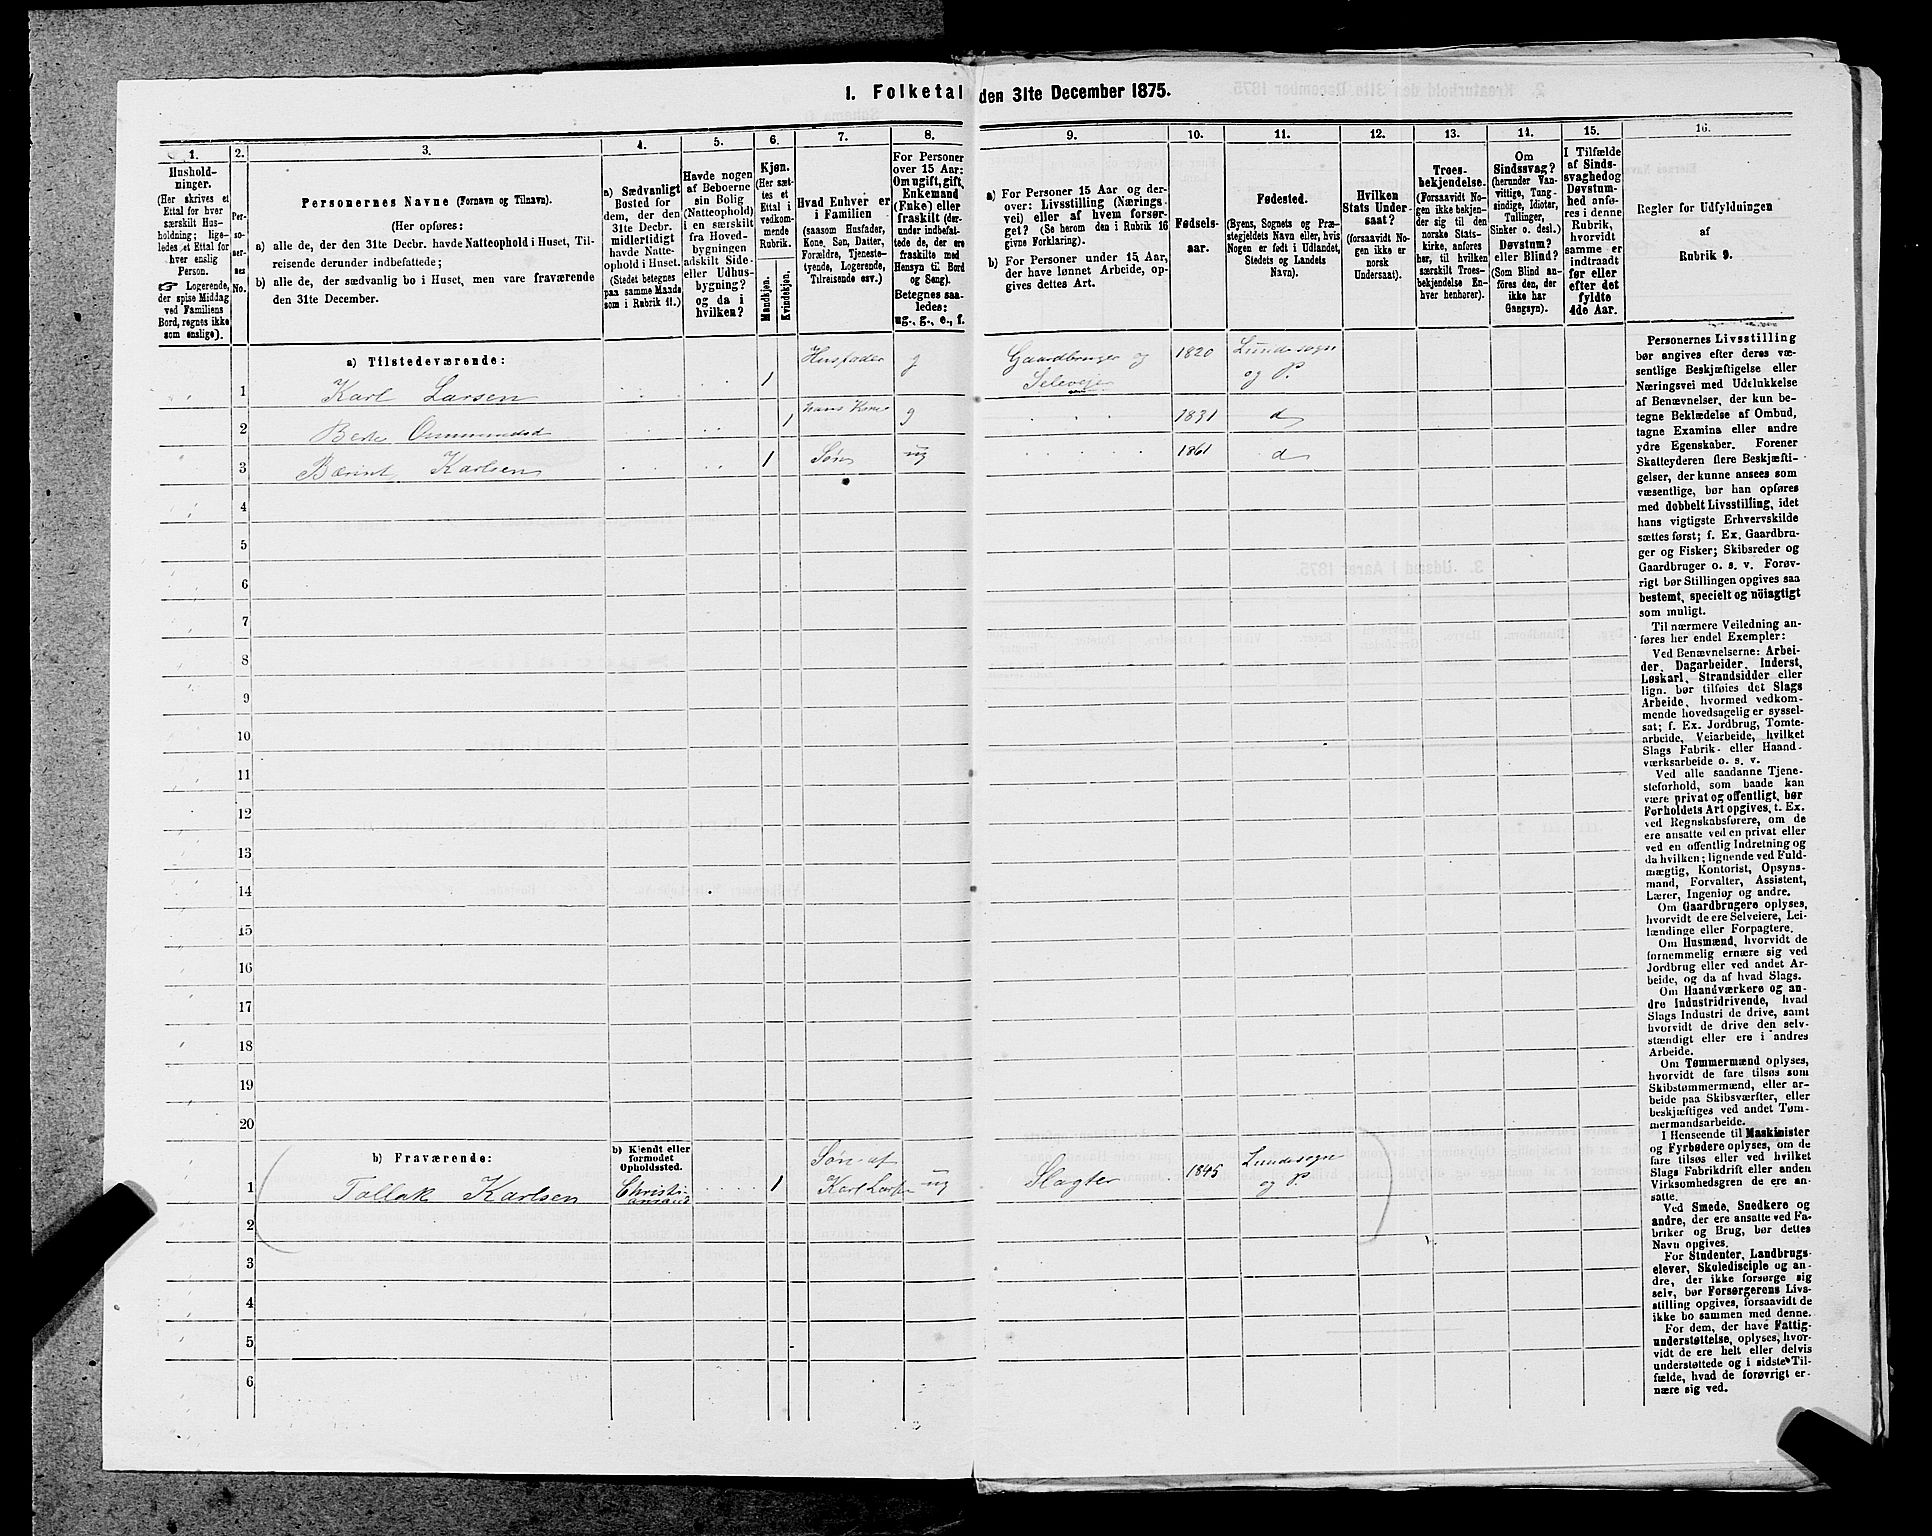 1. Folketal den 31te December 1875.
1.
2.
3.
4.
5.
6.
7.
8.
9.
10.
11.
12.
13.
14.
15.
16.
Hushold-
ninger.
(Her skrives et
Ettal for hver
særskilt Hus-
holdning; lige-
ledes et Ettal for
hver enslig
Person.
☞ Logerende,
der spise Middag
ved Familiens
Bord, regnes ikke
som enslige).
Per-
so-
ner-
nes
No.
Personernes Navne (Fornavn og Tilnavn).
(Her opføres:
a) alle de, der den 31te Decbr. havde Natteophold i Huset, Til-
reisende derunder indbefattede;
b) alle de, der sædvanlig bo i Huset, men vare fraværende
den 31te December.
a) Sædvanligt
Bosted for
dem, der den
31te Decbr.
midlertidigt
havde Natte-
ophold i Huset.
(Stedet betegnes
paa samme Maade
som i Rubrik 11.)
Havde nogen
af Beboerne
sin Bolig
(Natteophold)
i en særskilt
fra Hoved-
bygningen
adskilt Side-
eller Udhus-
bygning?
og da i
hvilken?
Kjøn.
(Her sæt-
tes et
Ettal i
vedkom-
mende
Rubrik.
Mandkjøn.
Kvindekjøn.
Hvad Enhver er
i Familien
(saasom Husfader,
Kone, Søn, Datter,
Forældre, Tjeneste-
tyende, Logerende,
Tilreisende osv.)
For Personer
over 15 Aar:
Om ugift, gift,
Enkemand
(Enke) eller
fraskilt (der-
under indbefat-
tede de, der ere
fraskilte med
Hensyn til Bord
og Seng).
Betegnes saa-
ledes:
ug., g., e., f.
a) For Personer 15 Aar og der-
over: Livsstilling (Nærings-
vei) eller af hvem forsør-
get? (Se herom den i Rubrik 16
givne Forklaring).
b) For Personer under 15 Aar,
der have lønnet Arbeide, op-
gives dettes Art.
Fødsels-
aar.
Fødested.
(Byens, Sognets og Præ-
stegjeldets Navn eller, hvis
Nogen er født i Udlandet,
Stedets og Landets
Navn).
Hvilken
Stats Under-
saat?
(forsaavidt No-
gen ikke er
norsk
Undersaat).
Troes-
bekjendelse.
(Forsaavidt No-
gen ikke bekjen-
der sig til den
norske Stats-
kirke, anføres
her, til hvilken
særskilt Troes-
bekjendelse En-
hver henhører).
Om
Sindssvag?
(herunder Van-
vittige, Tung-
sindige, Idioter,
Tullinger,
Sinker o. desl.)
Døvstum?
eller Blind?
(Som Blind an-
føres den, der
ikke har
Gangsyn).
I Tilfælde
af Sinds-
svaghed og
Døvstum-
hed anfø-
res i denne
Rubrik,
hvorvidt
samme er
indtraadt
før eller
efter det
fyldte
4de Aar.
Regler for Udfyldningen
af
Rubrik 9.
a) Tilstedeværende:
1 Karl Larsen 1 Husfader g Gaardbruger og Selevejer 1820 Lunde sogn og P.
2 Berte Ommundsd 1 hans Kone g 1831 d
3 Bærint Karlsen 1 Søn ug 1861 d
4
5
6
7
8
9
10
11
12
13
14
15
16
17
18
19
20
b) Fraværende:
b) Kjendt eller
formodet
Opholdssted.
1 Tollak Karlsen Christiansand 1 Søn af Karl Larsen ug Slagter 1845 Lunde sogn og P.
2
3
4
5
6
Personernes Livsstilling
bør angives efter deres væ-
sentlige Beskjæftigelse eller
Næringsvei med Udelukkelse
af Benævnelser, der kun be-
tegne Beklædelse af Ombud,
tagne Examina eller andre
ydre Egenskaber. Forener
Skatteyderen flere Beskjæfti-
gelser, der kunne ansees som
væsentlige, bør han opføres
med dobbelt Livsstilling, idet
hans vigtigste Erhvervskilde
sættes først; f. Ex. Gaardbru-
ger og Fisker; Skibsreder og
Gaardbruger o. s. v. Forøv-
rigt bør Stillingen opgives saa
bestemt, specielt og nöiagtigt
som muligt.
Til nærmere Veiledning an-
føres her endel Exempler:
Ved Benævnelserne: Arbei-
der, Dagarbeider, Inderst,
Løskarl, Strandsidder eller
lign. bør tilføies det Slags
Arbeide, hvormed vedkom-
mende hovedsagelig er syssel-
sat; f. Ex. Jordbrug, Tomte-
arbeide, Veiarbeide, hvilket
Slags Fabrik- eller Haand-
værksarbeide o. s. v.
Ved alle saadanne Tjene-
steforhold, som baade kan
være privat og offentligt, bør
Forholdets Art opgives, t. Ex.
ved Regnskabsførere, om de
ere ansatte ved en privat eller
ved en offentlig Indretning og
da hvilken; lignende ved Fuld-
mægtig, Kontorist, Opsyns-
mand, Forvalter, Assistent,
Lærer, Ingeniør og andre.
Om Gaardbrugere oplyses,
hvorvidt de ere Selveiere, Lei-
lændinge eller Forpagtere.
Om Husmænd, hvorvidt de
fornemmelig ernære sig ved
Jordbrug eller ved andet Ar-
beide, og da af hvad Slags.
Om Haandværkere og an-
dre Industridrivende, hvad
Slags Industri de drive, samt
hvorvidt de drive den selv-
stændigt eller ere i andres
Arbeide.
Om Tømmermænd oplyses,
hvorvidt de fare tilsøs som
Skibstømmermænd, eller ar-
beide paa Skibsværfter, eller
beskjæftiges ved andet Tøm-
mermandsarbeide.
I Henseende til Maskinister
og Fyrbødere oplyses, om de
fare tilsøs eller ved hvilket
Slags Fabrikdrift eller anden
Virksomhedsgren de ere an-
satte.
Ved Smede, Snedkere og
andre, der ere ansatte ved Fa-
briker og Brug, bør dettes
Navn opgives.
For Studenter, Landbrugs-
elever, Skoledisciple og an-
dre, der ikke forsørge sig
selv, bør Forsørgerens Livs-
stilling opgives, forsaavidt de
ikke bo sammen med denne.
For dem, der have Fattig-
understøttelse, oplyses, hvor-
vidt de ere helt eller delvis
understøttede og i sidste Til-
fælde, hvad de forøvrigt er-
nære sig ved.